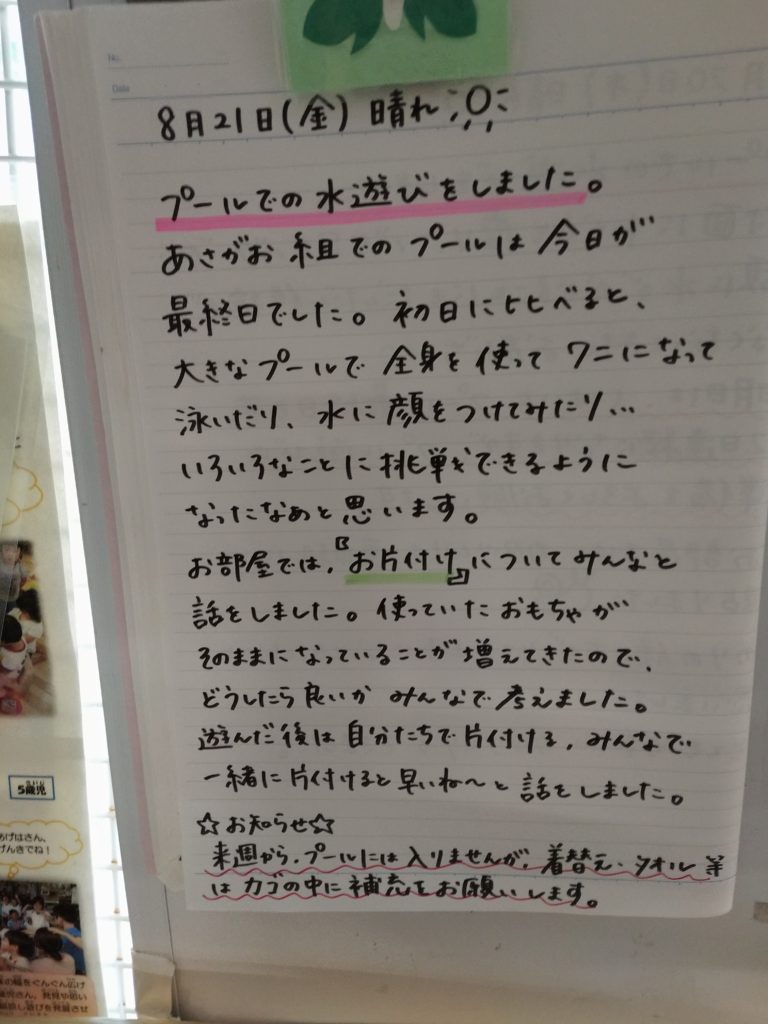 No.
Date
8月21日(金) 晴れ
プールでの水遊びをしました。
あさがお組でのプールは今日が
最終日でした。初日に比べると、
大きなプールで全身を使ってワニになって
泳いだり、水に顔をつけてみたり…
いろいろなことに挑戦できるように
なったなぁと思います。
お部屋では、『お片付け』についてみんなと
話をしました。使っていたおもちゃが
そのままになっていることが増えてきたので、
どうしたら良いかみんなで考えました。
遊んだ後は自分たちで片付ける、みんなで
一緒に片付けると早いね〜と話をしました。
☆お知らせ☆
来週から、プールには入りませんが、着替え、タオル等
はカゴの中に補充をお願いします。
5歳児
あげはさん、
げんきでね!
の幅をぐんぐん広げ